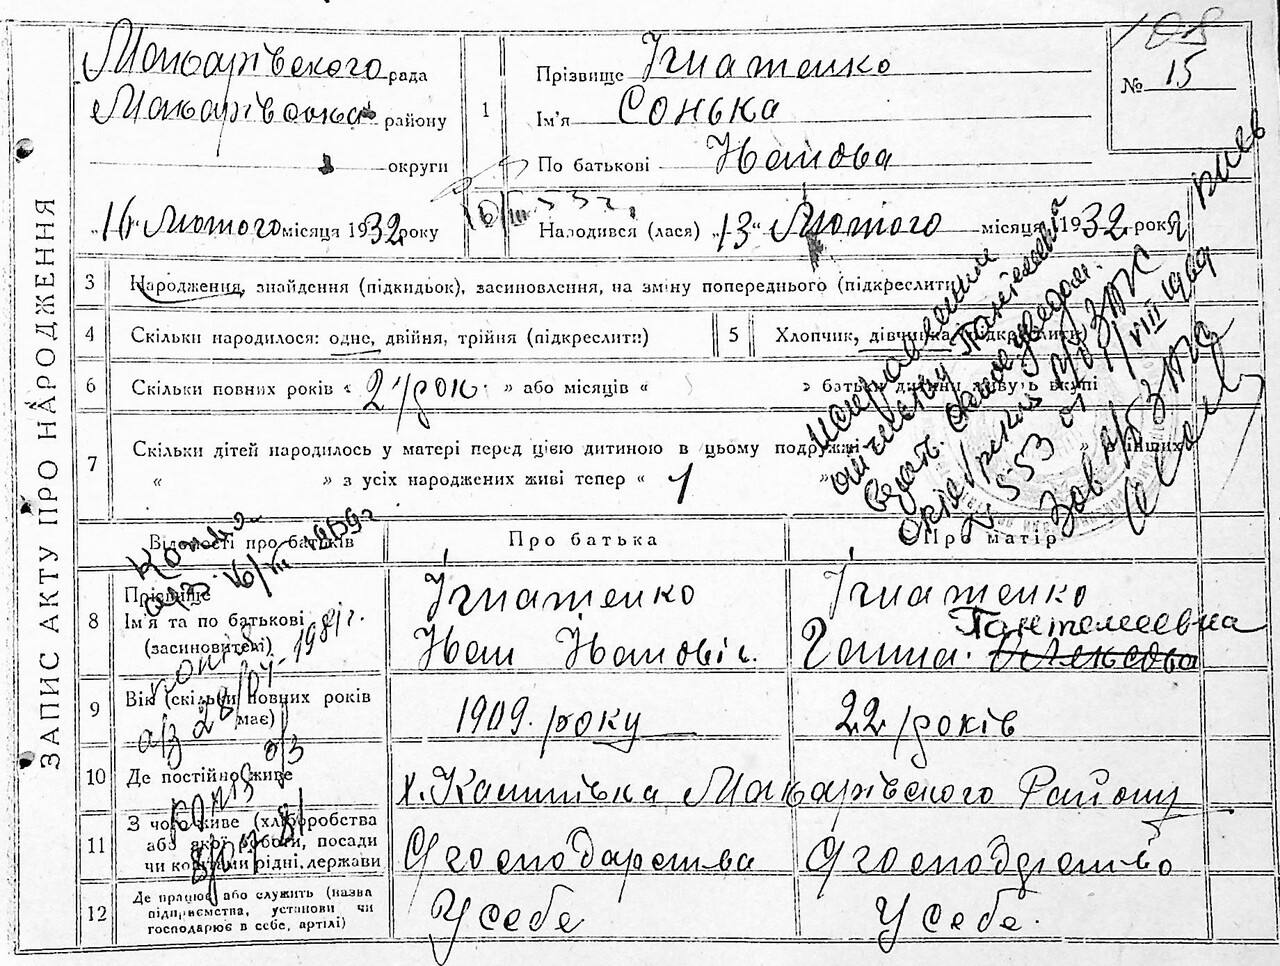 ЗАПИС АКТУ ПРО НАРОДЖЕННЯ
Макарівского рада
Макарівська району
округи
„16“ Лютого місяця 1932 року
1
Прізвище Ігнатенко
Ім'я Сонька
По батькові Іванова
Народився (лася) „13“ Лютого місяця 1932 року
108
№ 15
16/VII 53 г.
3 Народження, знайдення (підкидьок), засиновлення, на зміну попереднього (підкреслити)
4 Скільки народилося: одне, двійня, трійня (підкреслити)
5 Хлопчик, дівчинка (підкреслити)
6 Скільки повних років « 2 рок » або місяців « » батьки дитини живуть вкупі
7 Скільки дітей народилось у матері перед цією дитиною в цьому подружжі « » в інших
« » з усіх народжених живі тепер « 1 »
Исправлении
отчеству Пантелеевой
Октябрский р/б ЗАГС г Киев
№ 553 от 1/VIII 1969
Зав р/б ЗАГС
Відомості про батьків
Про батька
Про матір
Копия
16/VII 1959г
8 Прізвище
Ім'я та по батькові
(засиновителі)
Ігнатенко
Іван Іванович.
Ігнатенко
Пантелеевна
Ганна. Олексова
копія
а/з 28/IV-1981г.
9 Вік (скільки повних років має)
1909. року
22 років
10 Де постійно живе
х. Калинівка Макарівского Району
11 З чого живе (хліборобства
або якої роботи, посади
чи коштами рідні, держави
З господарства
З господрство
12 Де працює або служить (назва
підприємства, установи чи
господарює в себе, артілі)
У себе
У себе.